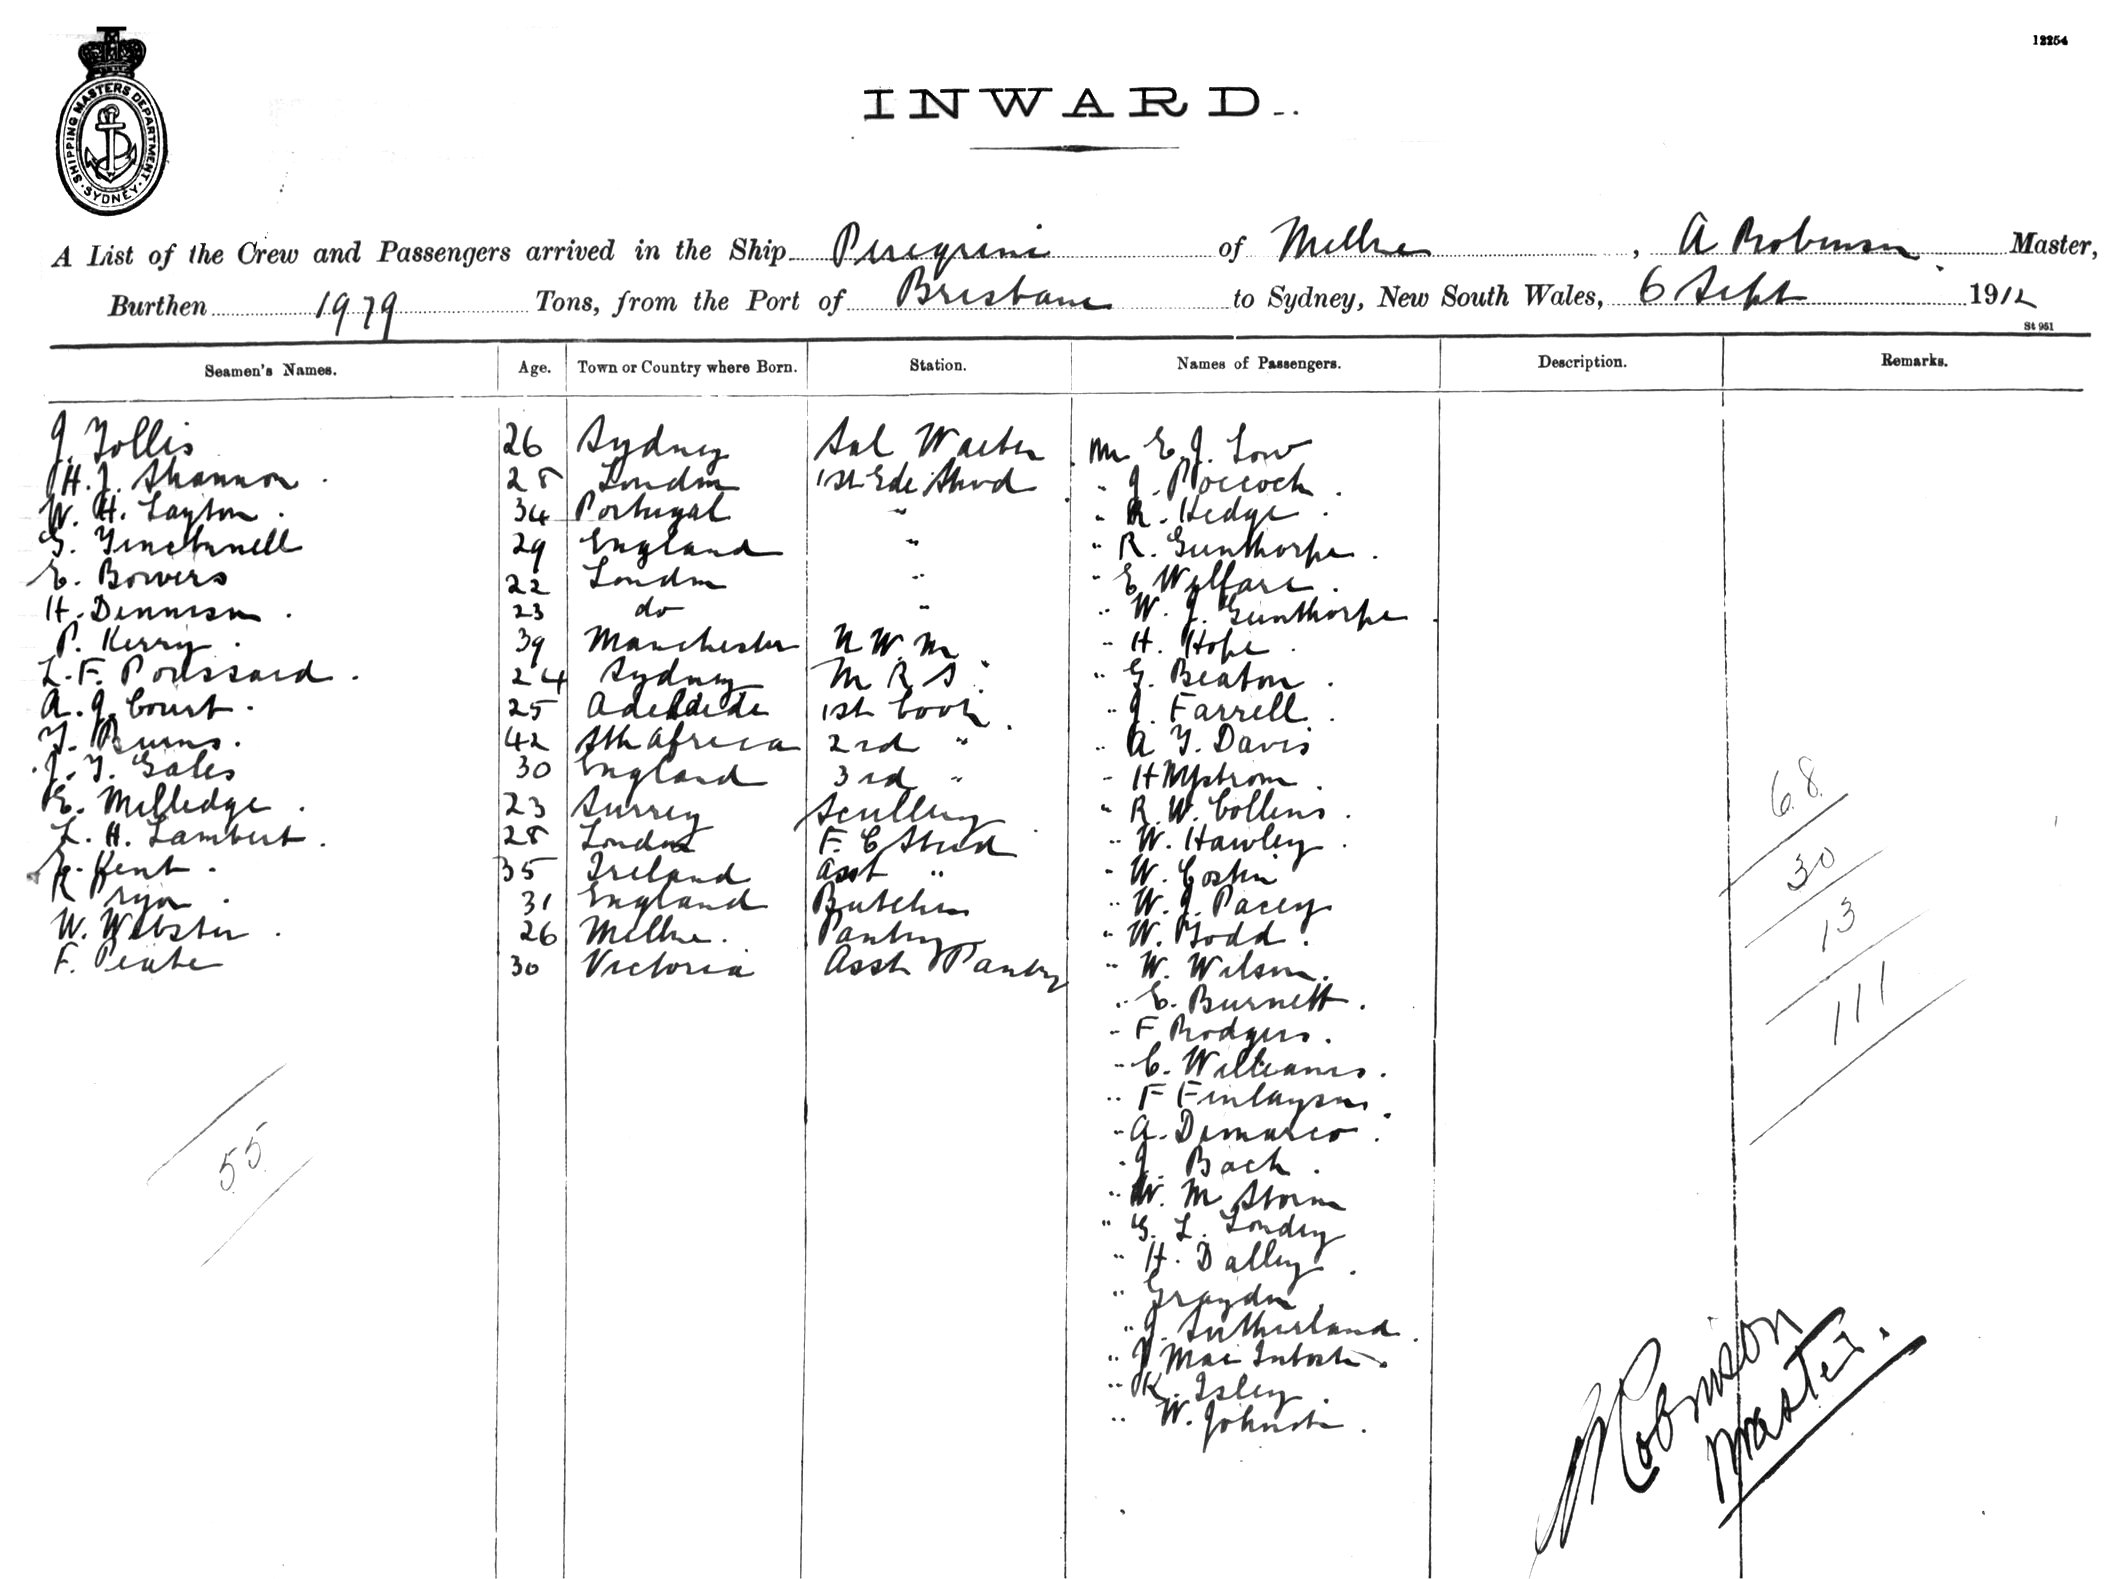 12254
SHIPPING MASTERS DEPARTMENT. SYDNEY
INWARD.
A List of the Crew and Passengers arrived in the Ship Peregrine of Melbne, A Robinson Master,
Burthen 1979 Tons, from the Port of Brisbane to Sydney, New South Wales, 6 Sept 1912
St 951
Seamen's Names. Age. Town or Country where Born. Station. Names of Passengers. Description. Remarks.
J. Tollis 26 Sydney Sal Waiter Mr E. J. Low
H. J. Shannon 28 London 1st Sde Stwd " J. Pocock
W. H. Layton 34 Portugal " " R. Hedge
29 England " " R. Gunthorpe
E. Bowers 22 London " " E Welfare
H. Dennison 23 do " " W. J. Gunthorpe
P. Kerry 39 Manchester N. W. M " H. Hope
L. F. Poussard 24 Sydney M R S " G. Beaton
A. J. Court 25 Adelaide 1st Cook " J. Farrell
T. Burns 42 Sth Africa 2nd " " A T. Davis
J. T. Gales 30 England 3rd " " H Nystrom
E. Milledge 23 Surrey Scullery " R. W. Collins
L. H. Lambert 28 London F. C Stwd " W. Hawley
G. Kent 35 Ireland Asst " " W. Costin
R Pryor 31 England Butcher " W. J. Pacey
W. Webster 26 Melbne. Pantry " W. Todd
F. Peate 30 Victoria Asst Pantry " W. Wilson
" E. Burnett
" F Rodgers
" C. Williams
" F Finlayson
" A. Demarco
" J. Bach
" W. M Storm
" G. L. Londey
" H. Dalley
" Graydon
" J. Sutherland
" J MacIntosh
" K. Isley
" W. Johnston
55
68
30
13
111
A Robinson
Master.